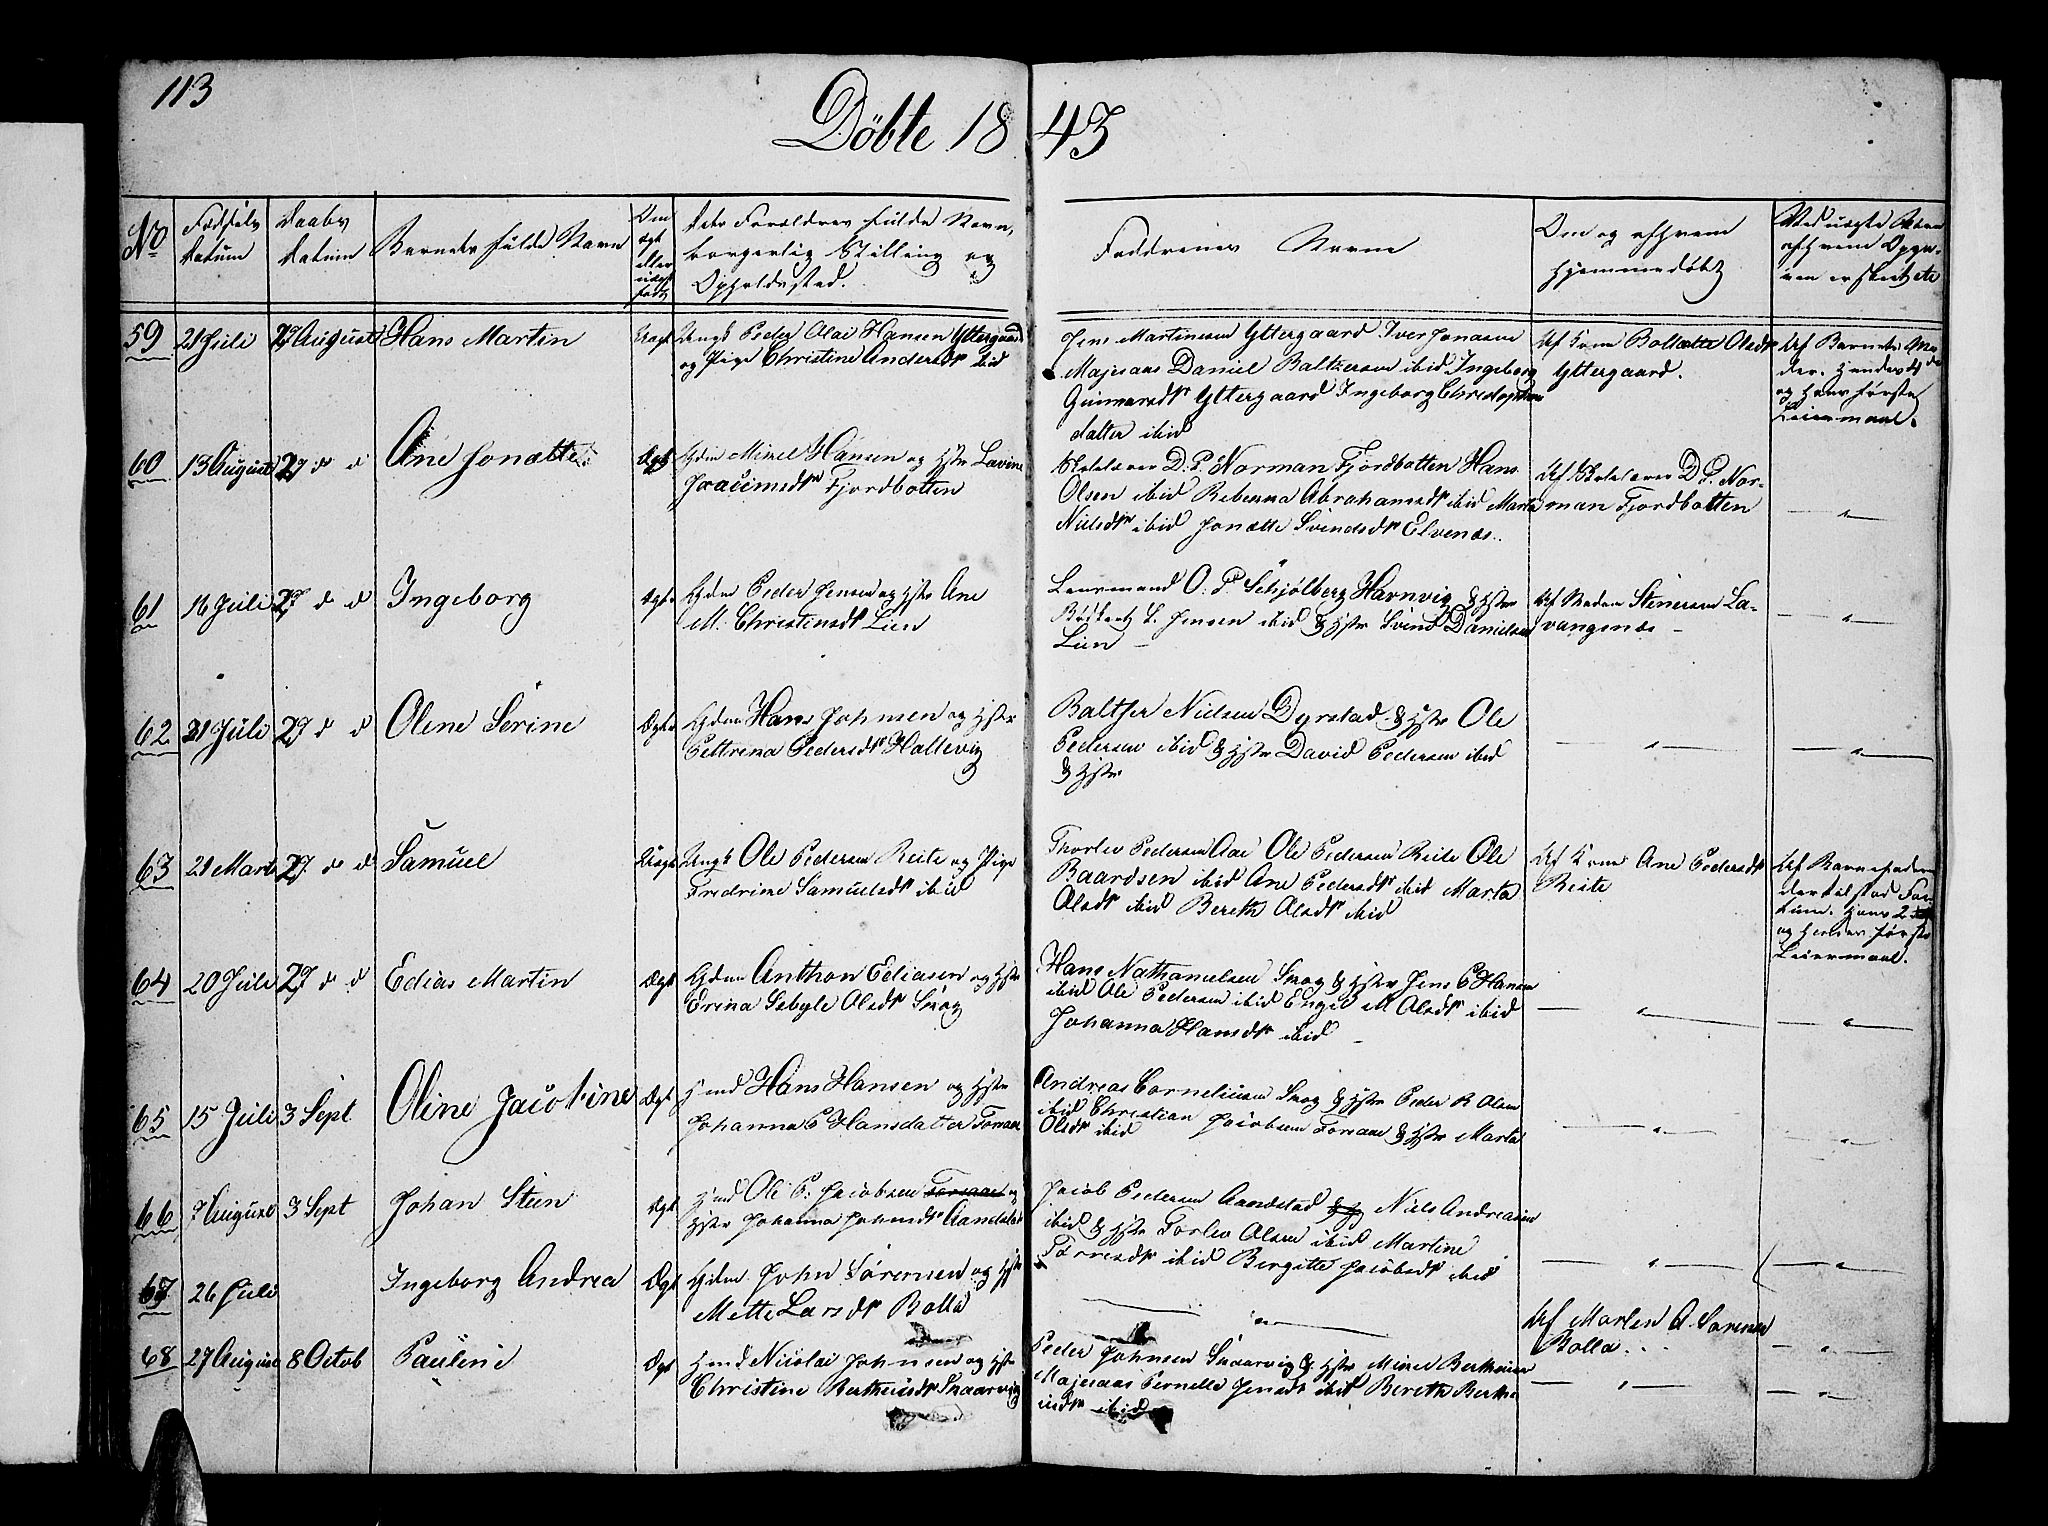 113
Döbte 1843
No
Fødsels Datum
Daabs Datum
Barnets fulde Navn
Om ægte eller uægte født
Dets Forældres fulde Navn, borgerlig Stilling og Opholdssted.
Faddrenes Navne
Om og af hvem hjemmedøbt
59 21 Juli 27 August Hans Martin Uægt Ungk Peder Olai Hansen Yttergaard
og Pige Christine Andersdr ibid
Jens Martinusen Yttergaard Iver Jonasen
Majesaas Daniel Baltzersen ibid Ingeborg
Gunnarsdr Yttergaard Ingeborg Christophers
datter ibid
Af Kone Bolette Olsdr
Yttergaard.
Af Barnets Mo
der. Hendes 4de
og Hans første
Leiermaal.
60 13 August 27 d d Ane Jonette Ægt Gdm Mikel Hansen og Hstr Lavine
Joacimsdr Fjordbotten
Skolelærer D. P. Norman Fjordbotten Hans
Olsen ibid Rebecca Abrahamsdr ibid Marta
Nielsdr ibid Jonette Svendsdr Elvenæs.
Af Skolelærer D. P. Nor-
man Fjordbotten
61 16 Juli 27 d d Ingeborg Ægte Gdm Peder Jensen og Hstr Ane
M. Christensdr Lien
Lensmand O. P. Schjølberg Havnvig & Hstr
L. Jensen ibid & Hstr Svend Danielsen
Lien
Af Madam Stenersen La-
vangsnæs
62 31 Juli 27 d d Olene Serine Ægte Gdmn Hans Johnsen og Hstr
Pettrina Pedersdr Hallevig
Baltser Nielsen Dyrstad & Hstr Ole
Pedersen ibid & Hstr David Pedersen ibid
& Hstr
63 21 Marts 27 d d Samuel Uægt Ungk Ole Pedersen Reite og Pige
Fredrine Samuelsdr ibid
Thorlev Pedersen Aae Ole Pedersen Reite Ole
Baardsen ibid Ane Pedersdr ibid Marta
Olsdr ibid Bereth Olsdr ibid
Af Kone Ane Pedersdr
Reite
Af Barnefaderen
der tilstod Fac-
tum. Hans 2
og hendes første
Leiermaal.
64 20 Juli 27 d d Edias Martin Ægt Gdmn Anthon Ediasen og Hstr
Erina Sebyle Olsdr Skog
Hans Nathanielsen Skog & Hstr Jens P Hansen
ibid Ole Pedersen ibid Engel M Olsdr ibid
Johanna Hansdr ibid
65 15 Juli 3 Sept Oline Jacobine Ægt Hmd Hans Hansen og Hstr
Johanna P Hansdatter Forsaae
Andreas Corneliusen Skog & Hstr Peder R Olsen
ibid Christian Jacobsen Forsaae & Hstr Marta
Olsdr ibid
66 7 August 3 Sept Johan Steen Ægt Hmd Ole P. Jacobsen Forsaae og
Hstr Johanna Johnsdr Aandstad
Jacob Pedersen Aandstad Niels Andreasen
ibid & Hstr Torlev Olsen ibid Martine
Torresdr ibid Birgitte Jacobsdr ibid
67 26 Juli Ingeborg Andrea Ægt Gdmn John Sørensen og Hstr
Mette Larsdr Bolla
Af Morten A. Sørensen
Bolla
68 27 August 8 Octob Pauline Ægt Hmd Nicolai Johnsen og Hstr
Christine Bertheusdr Skaarvig
Peder Johnsen Skaarvig & Hstr Mikel Bertheusen
Majesaas Pernelle Jensdr ibid Bereth Berthe
usdr ibid